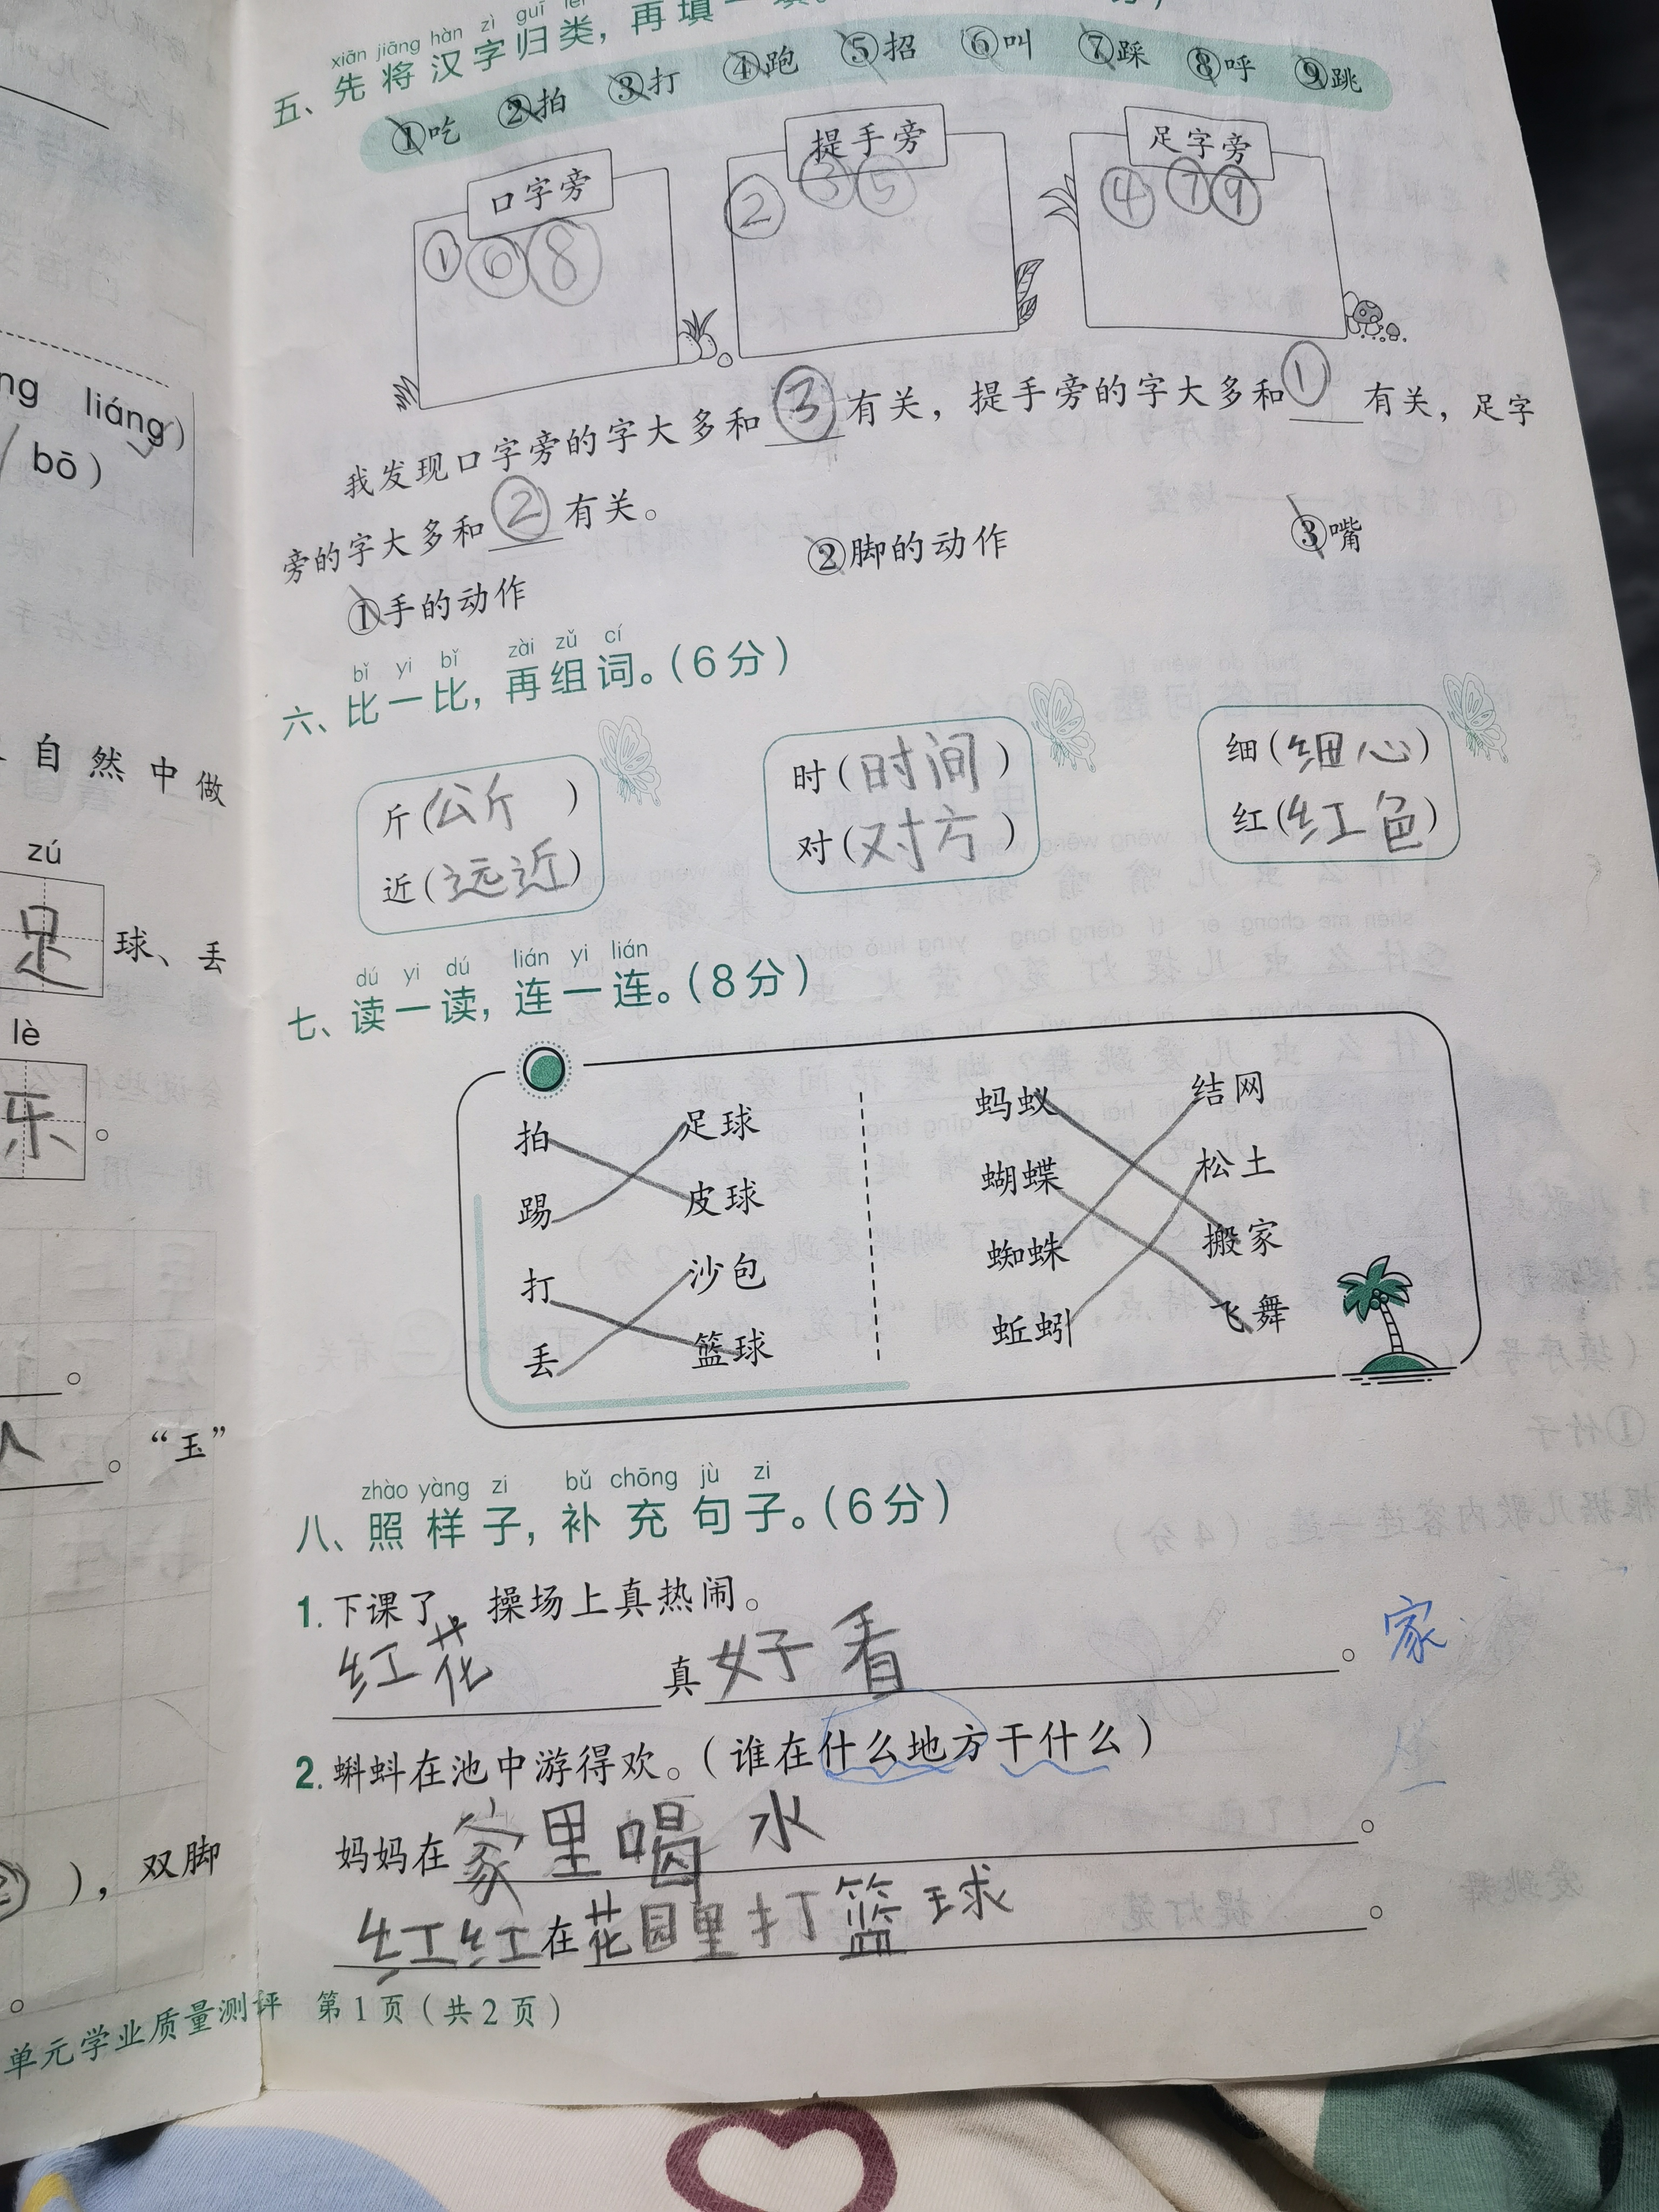 ng liáng)
bō)
自然中做
zú
足 球、丢
lè
乐 。
。
人 。“玉”
)，双脚
。
单元学业质量测评 第1页(共2页)
xiān jiāng hàn zì guī lèi
五、先将汉字归类，再填一填。
①吃 ②拍 ③打 ④跑 ⑤招 ⑥叫 ⑦踩 ⑧呼 ⑨跳
口字旁 提手旁 足字旁
①⑥⑧ ②③⑤ ④⑦⑨
我发现口字旁的字大多和③有关，提手旁的字大多和①有关，足字
旁的字大多和②有关。
①手的动作 ②脚的动作 ③嘴
bǐ yi bǐ zài zǔ cí
六、比一比，再组词。(6分)
斤(公斤) 时(时间) 细(细心)
近(远近) 对(对方) 红(红色)
dú yi dú lián yi lián
七、读一读，连一连。(8分)
拍 足球 蚂蚁 结网
踢 皮球 蝴蝶 松土
打 沙包 蜘蛛 搬家
丢 篮球 蚯蚓 飞舞
zhào yàng zi bǔ chōng jù zi
八、照样子，补充句子。(6分)
1.下课了，操场上真热闹。
红花真好看。 家
2.蝌蚪在池中游得欢。(谁在什么地方干什么)
妈妈在家里喝水。
红红在花园里打篮球。